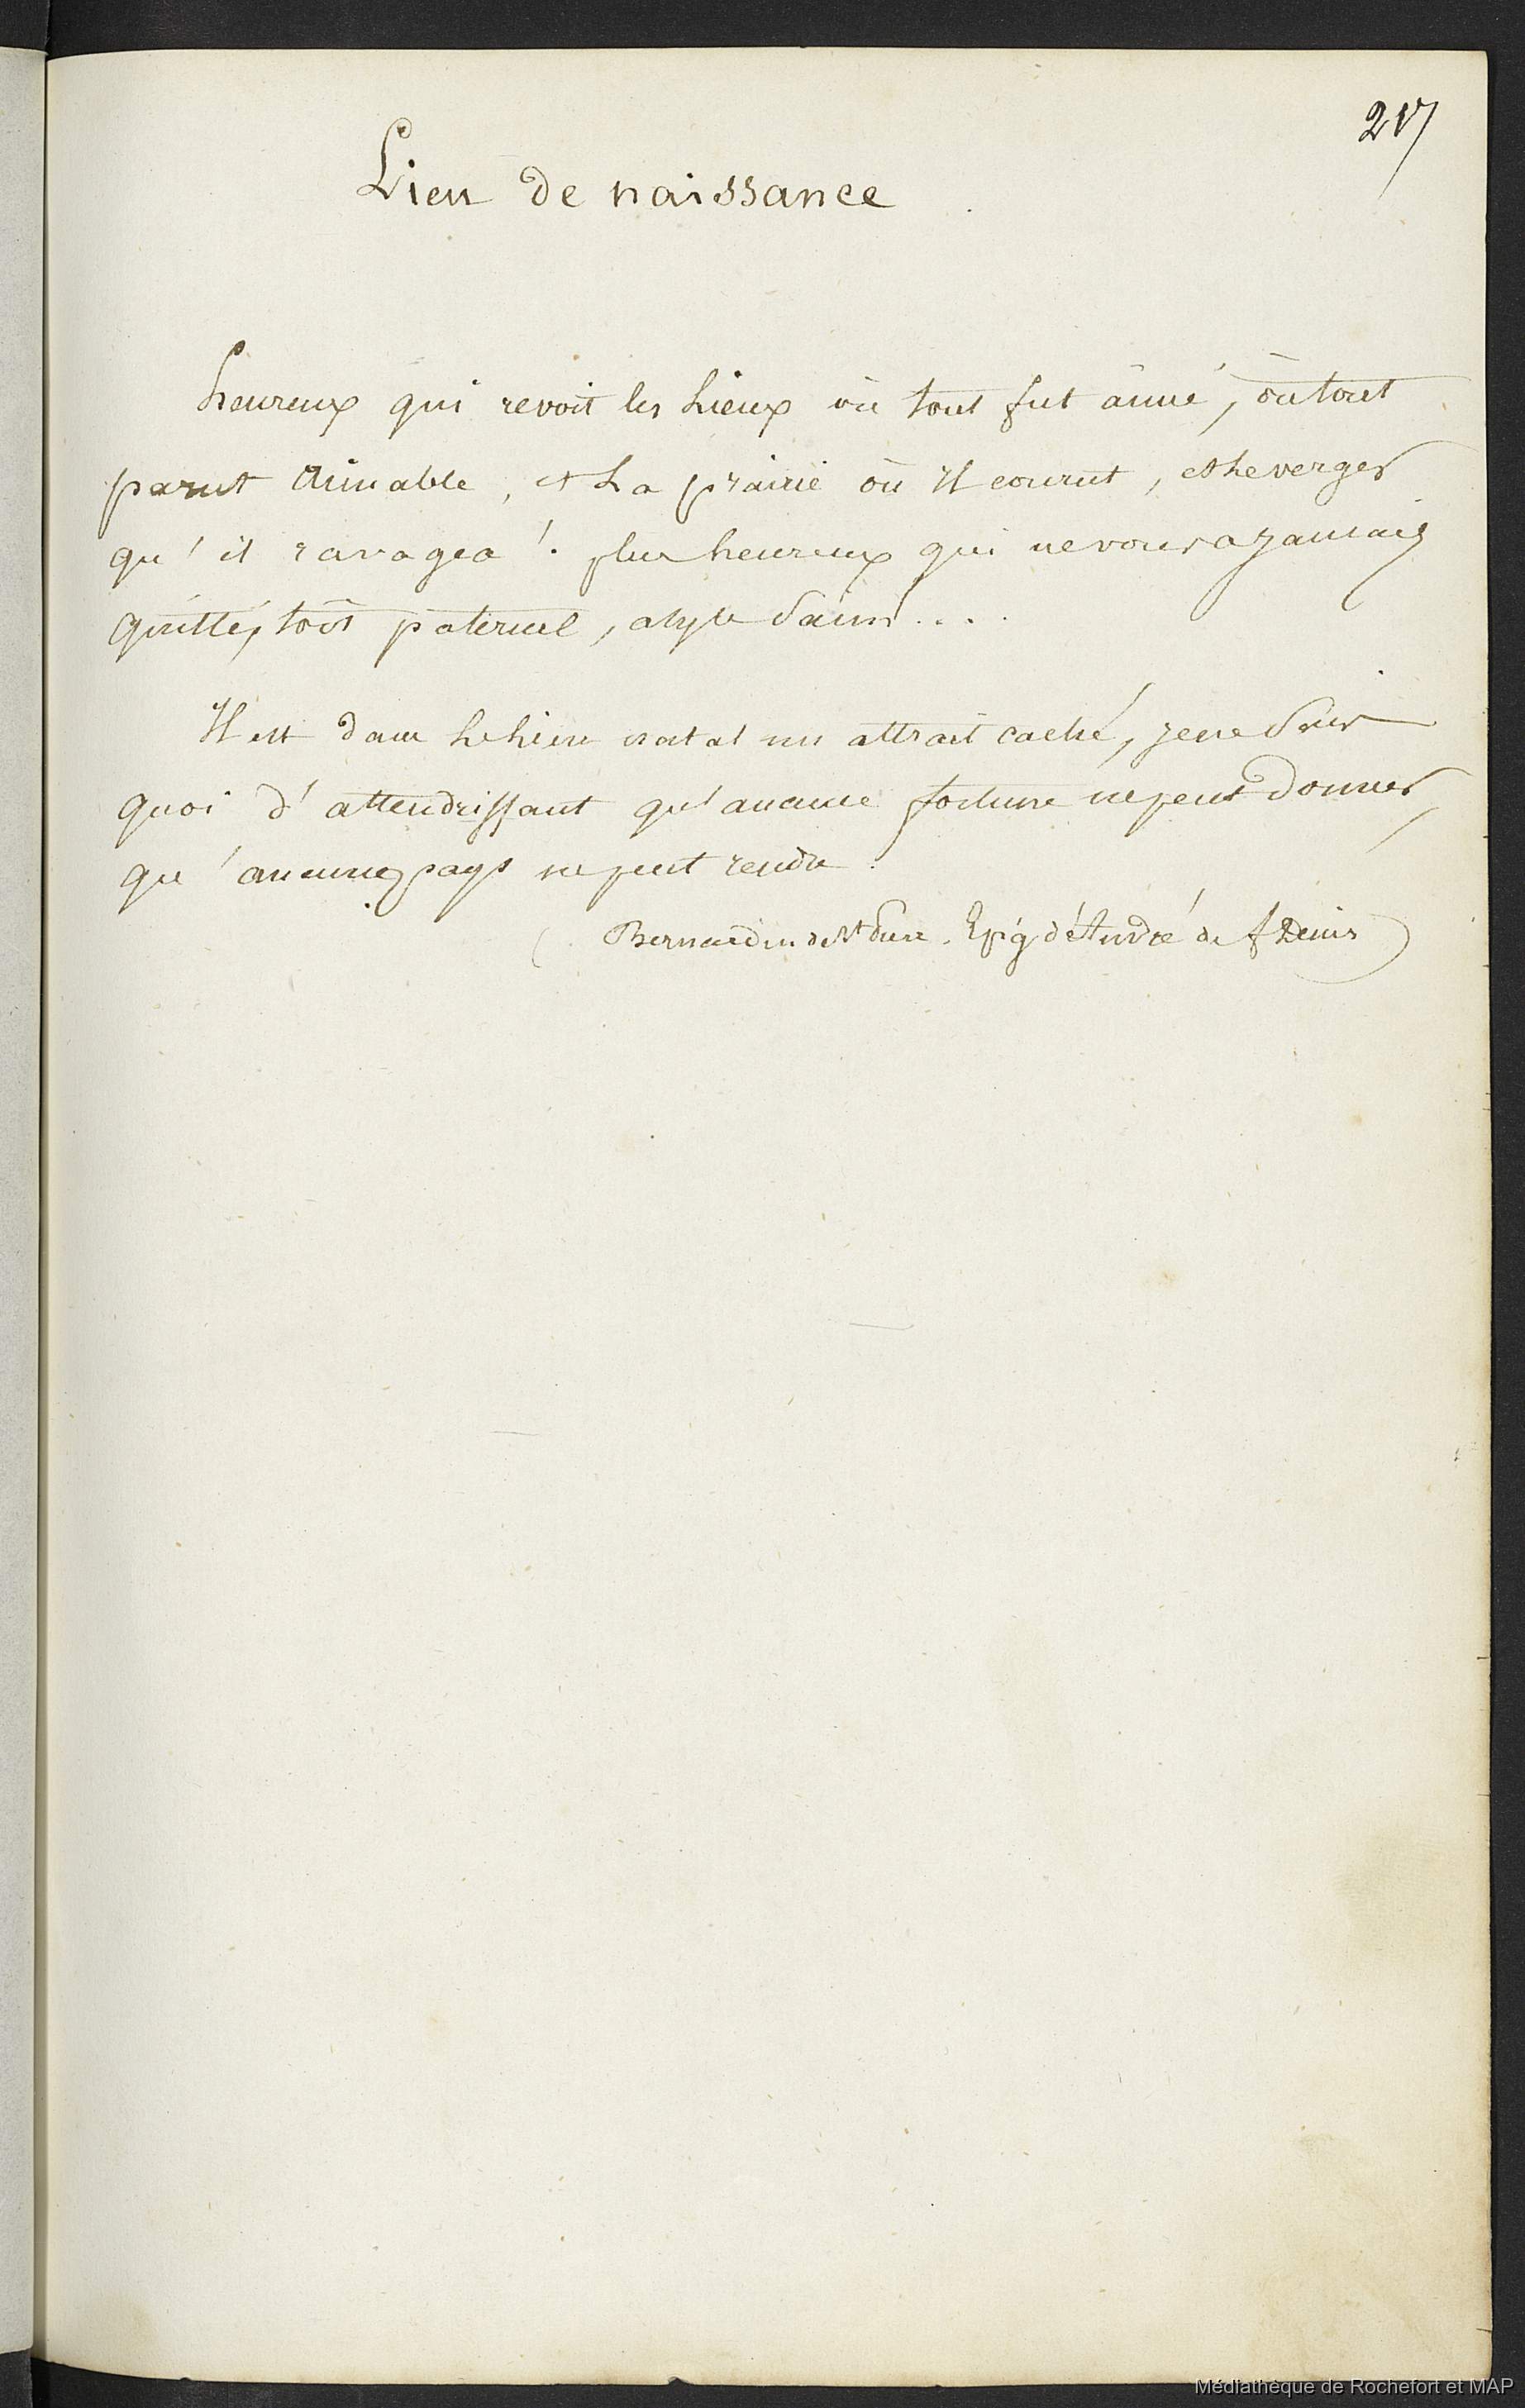 217
Lieu de naissance
heureux qui revoit les Lieux où tout fut aimé, où tout
parut aimable, et La prairie où Il courut, et Le verger
qu'il ravagea ! plus heureux qui ne vous a jamais
quitté, toit paternel, asyle saint....
Il est dans Le Lieu natal un attrait caché, je ne sais
quoi d'attendrissant qu'aucune fortune ne peut donner,
qu'aucun pays ne peut rendre.
(Bernardin de St Pierre. Epig d'André de f Denis)
Médiathèque de Rochefort et MAP